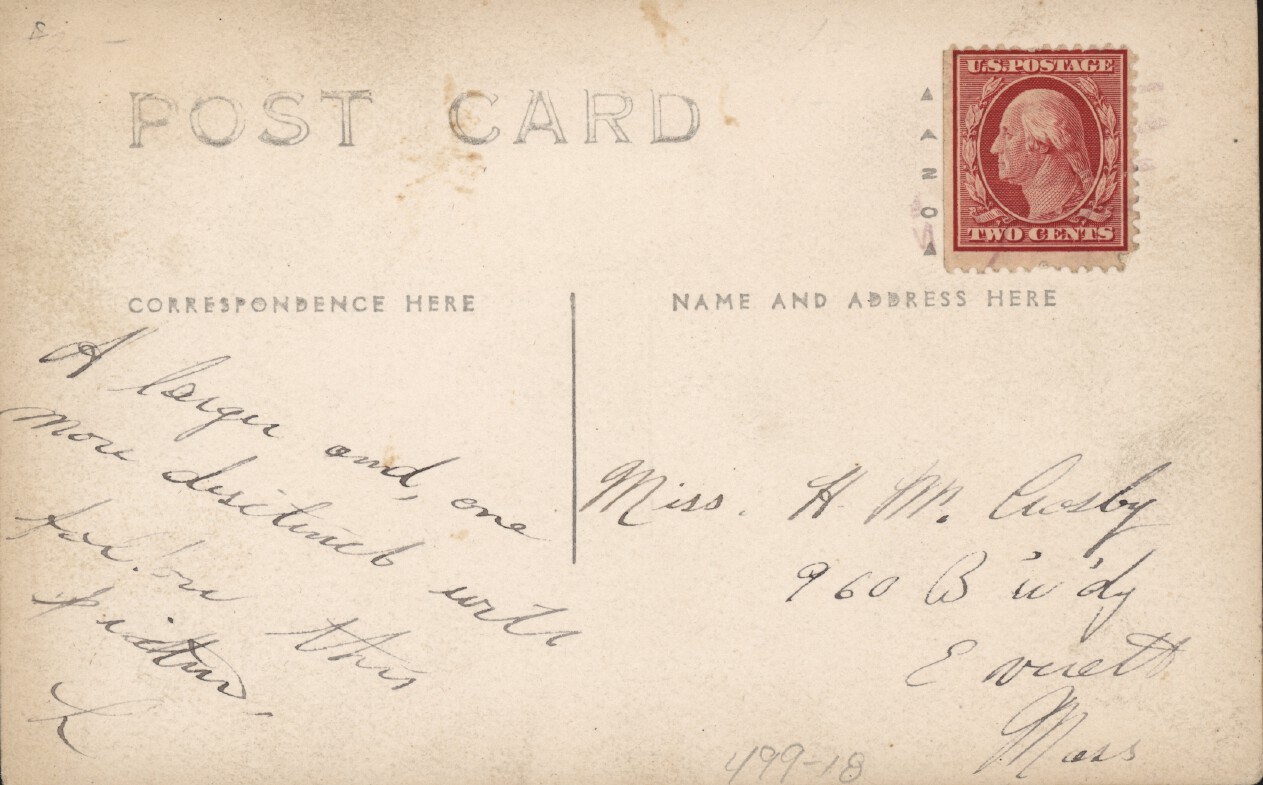 POST CARD
AZO
U.S. POSTAGE
TWO CENTS
CORRESPONDENCE HERE
A larger and, one
more desitinct will
follow this
L
NAME AND ADDRESS HERE
Miss. H. M. Crosby
960 B'w'dy
Everett
Mass
499-18